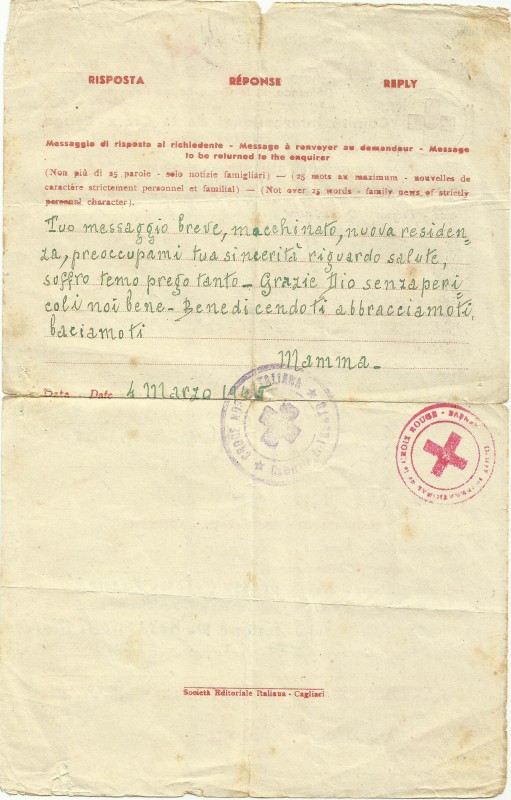 RISPOSTA RÉPONSE REPLY
Messaggio di risposta al richiedente - Message à renvoyer au demandeur - Message
to be returned to the enquirer
(Non più di 25 parole - solo notizie famigliari) — (25 mots au maximum - nouvelles de
caractère strictement personnel et familial) — (Not over 25 words - family news of strictly
personal character).
Tuo messaggio breve, macchinato, nuova residen-
za, preoccupami tua sincerità riguardo salute,
soffro temo prego tanto - Grazie Dio senza peri
coli noi bene - Benedicendoti abbracciamoti,
baciamoti
Mamma -
Data - Date 4 Marzo
CROCE ITALIANA
CROIX ROUGE
INTERNATIONAL de la
Società Editoriale Italiana - Cagliari